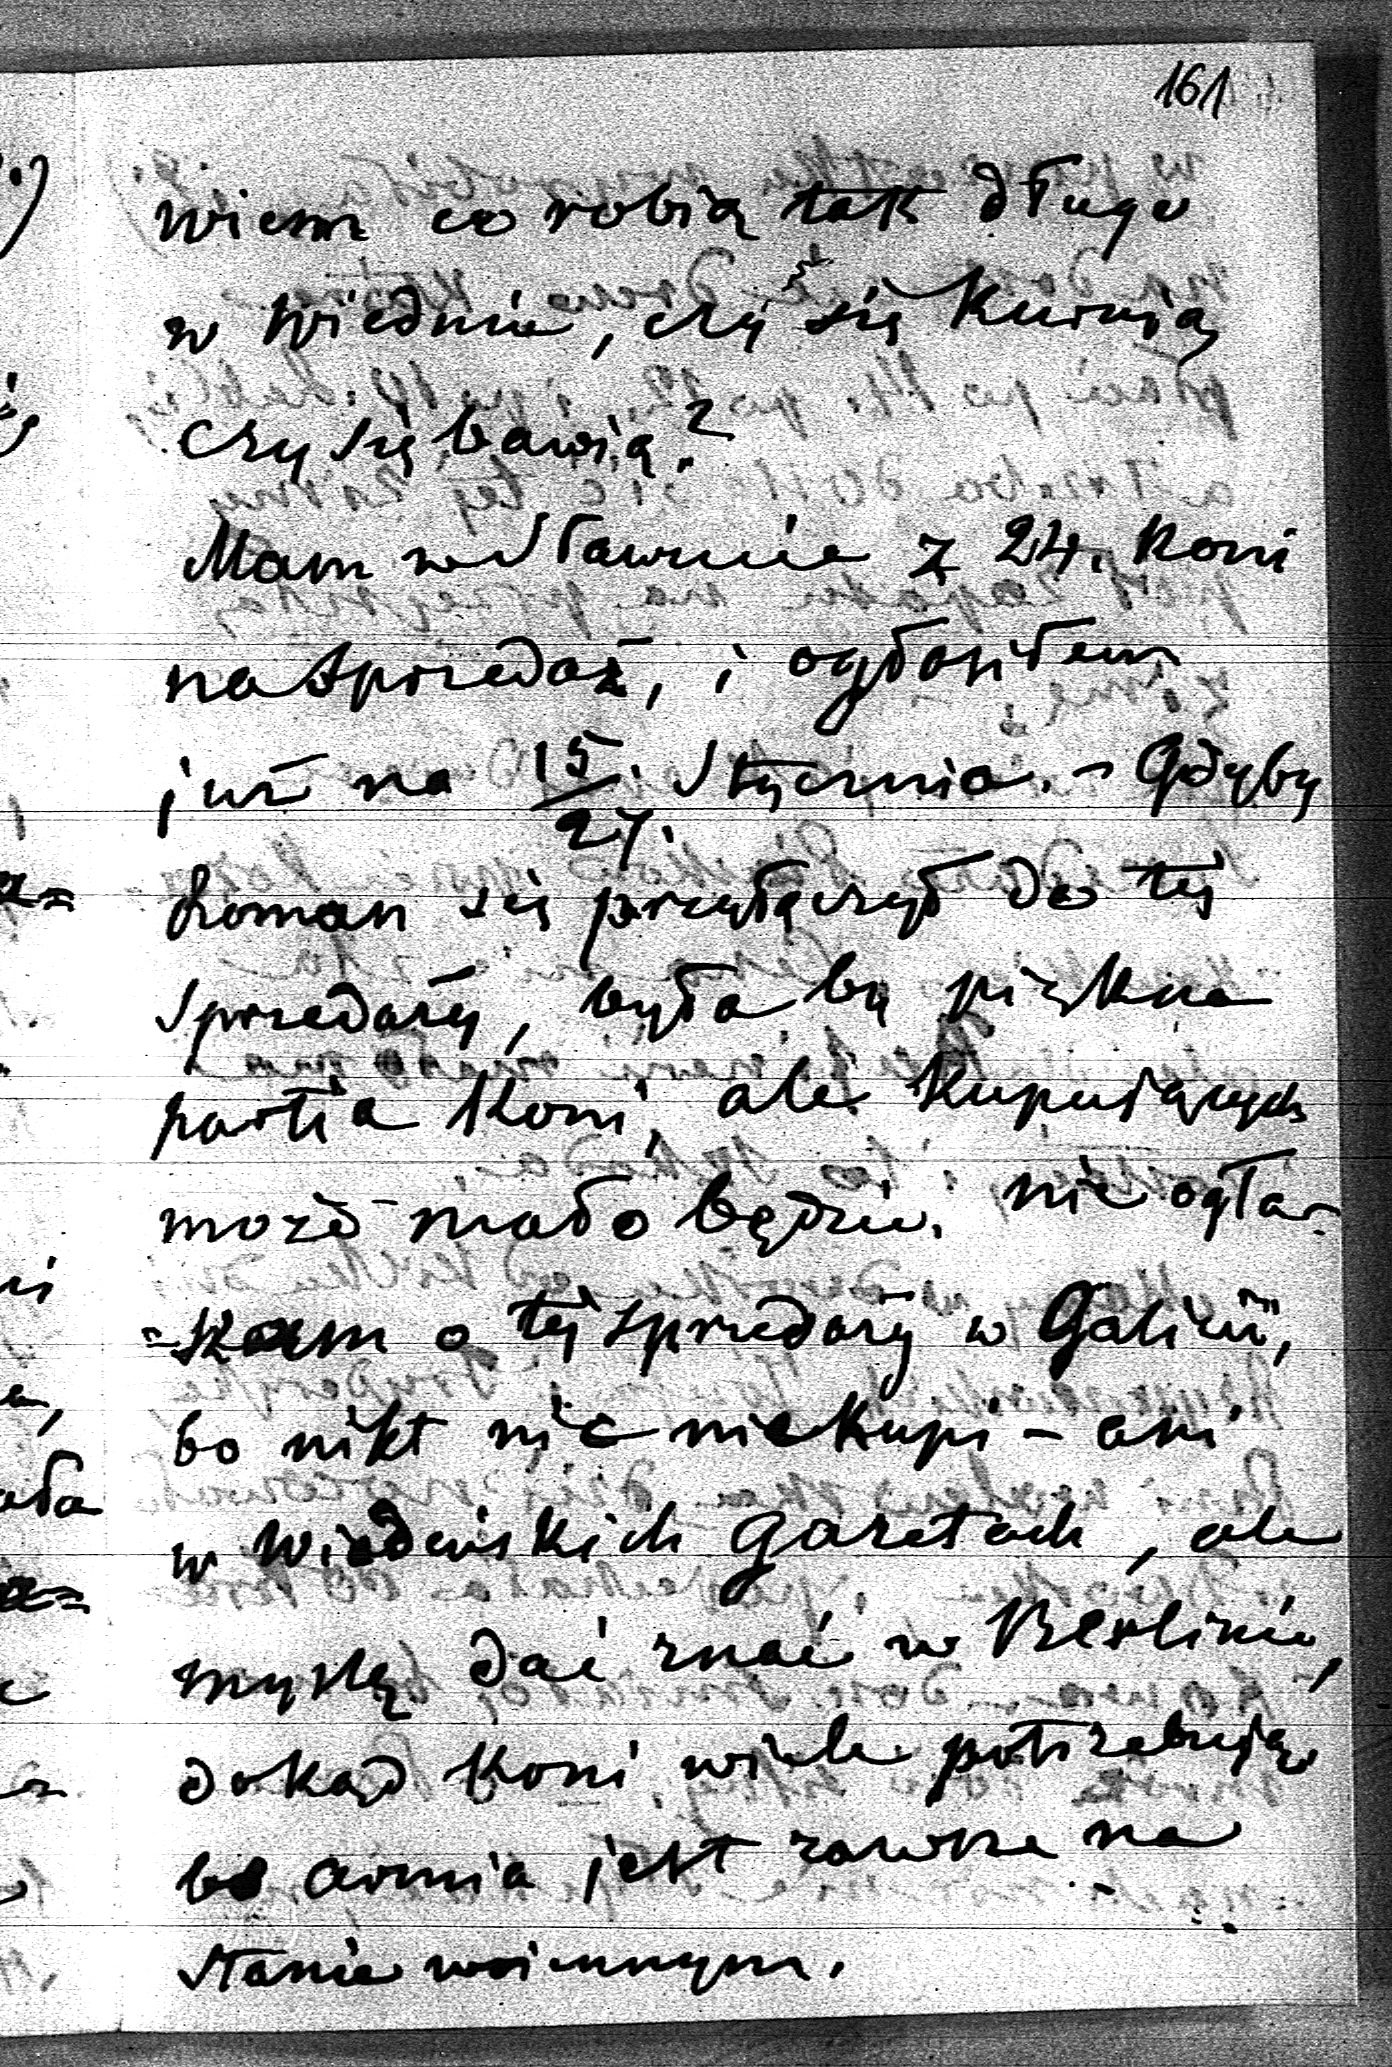 161
wiem co robią tak długo
w Wiedniu, czy się kurują
czy się bawią?
Mam w Sławucie z 24. koni
na sprzedaż, i ogłosiłem
już na 15/27. Stycznia. - Gdyby
Roman się przyłączył do tej
sprzedaży, była by piękna
partia koni, ale kupujących
może mało będzie. nie ogła-
-szam o tej sprzedaży w Galicii,
bo nikt nic niekupi - ani
w wiedeńskich gazetach, ale
myślę dać znać w Berlinie,
dokąd koni wiele potrzebują
bo armia jest zawsze na
stanie woiennym.